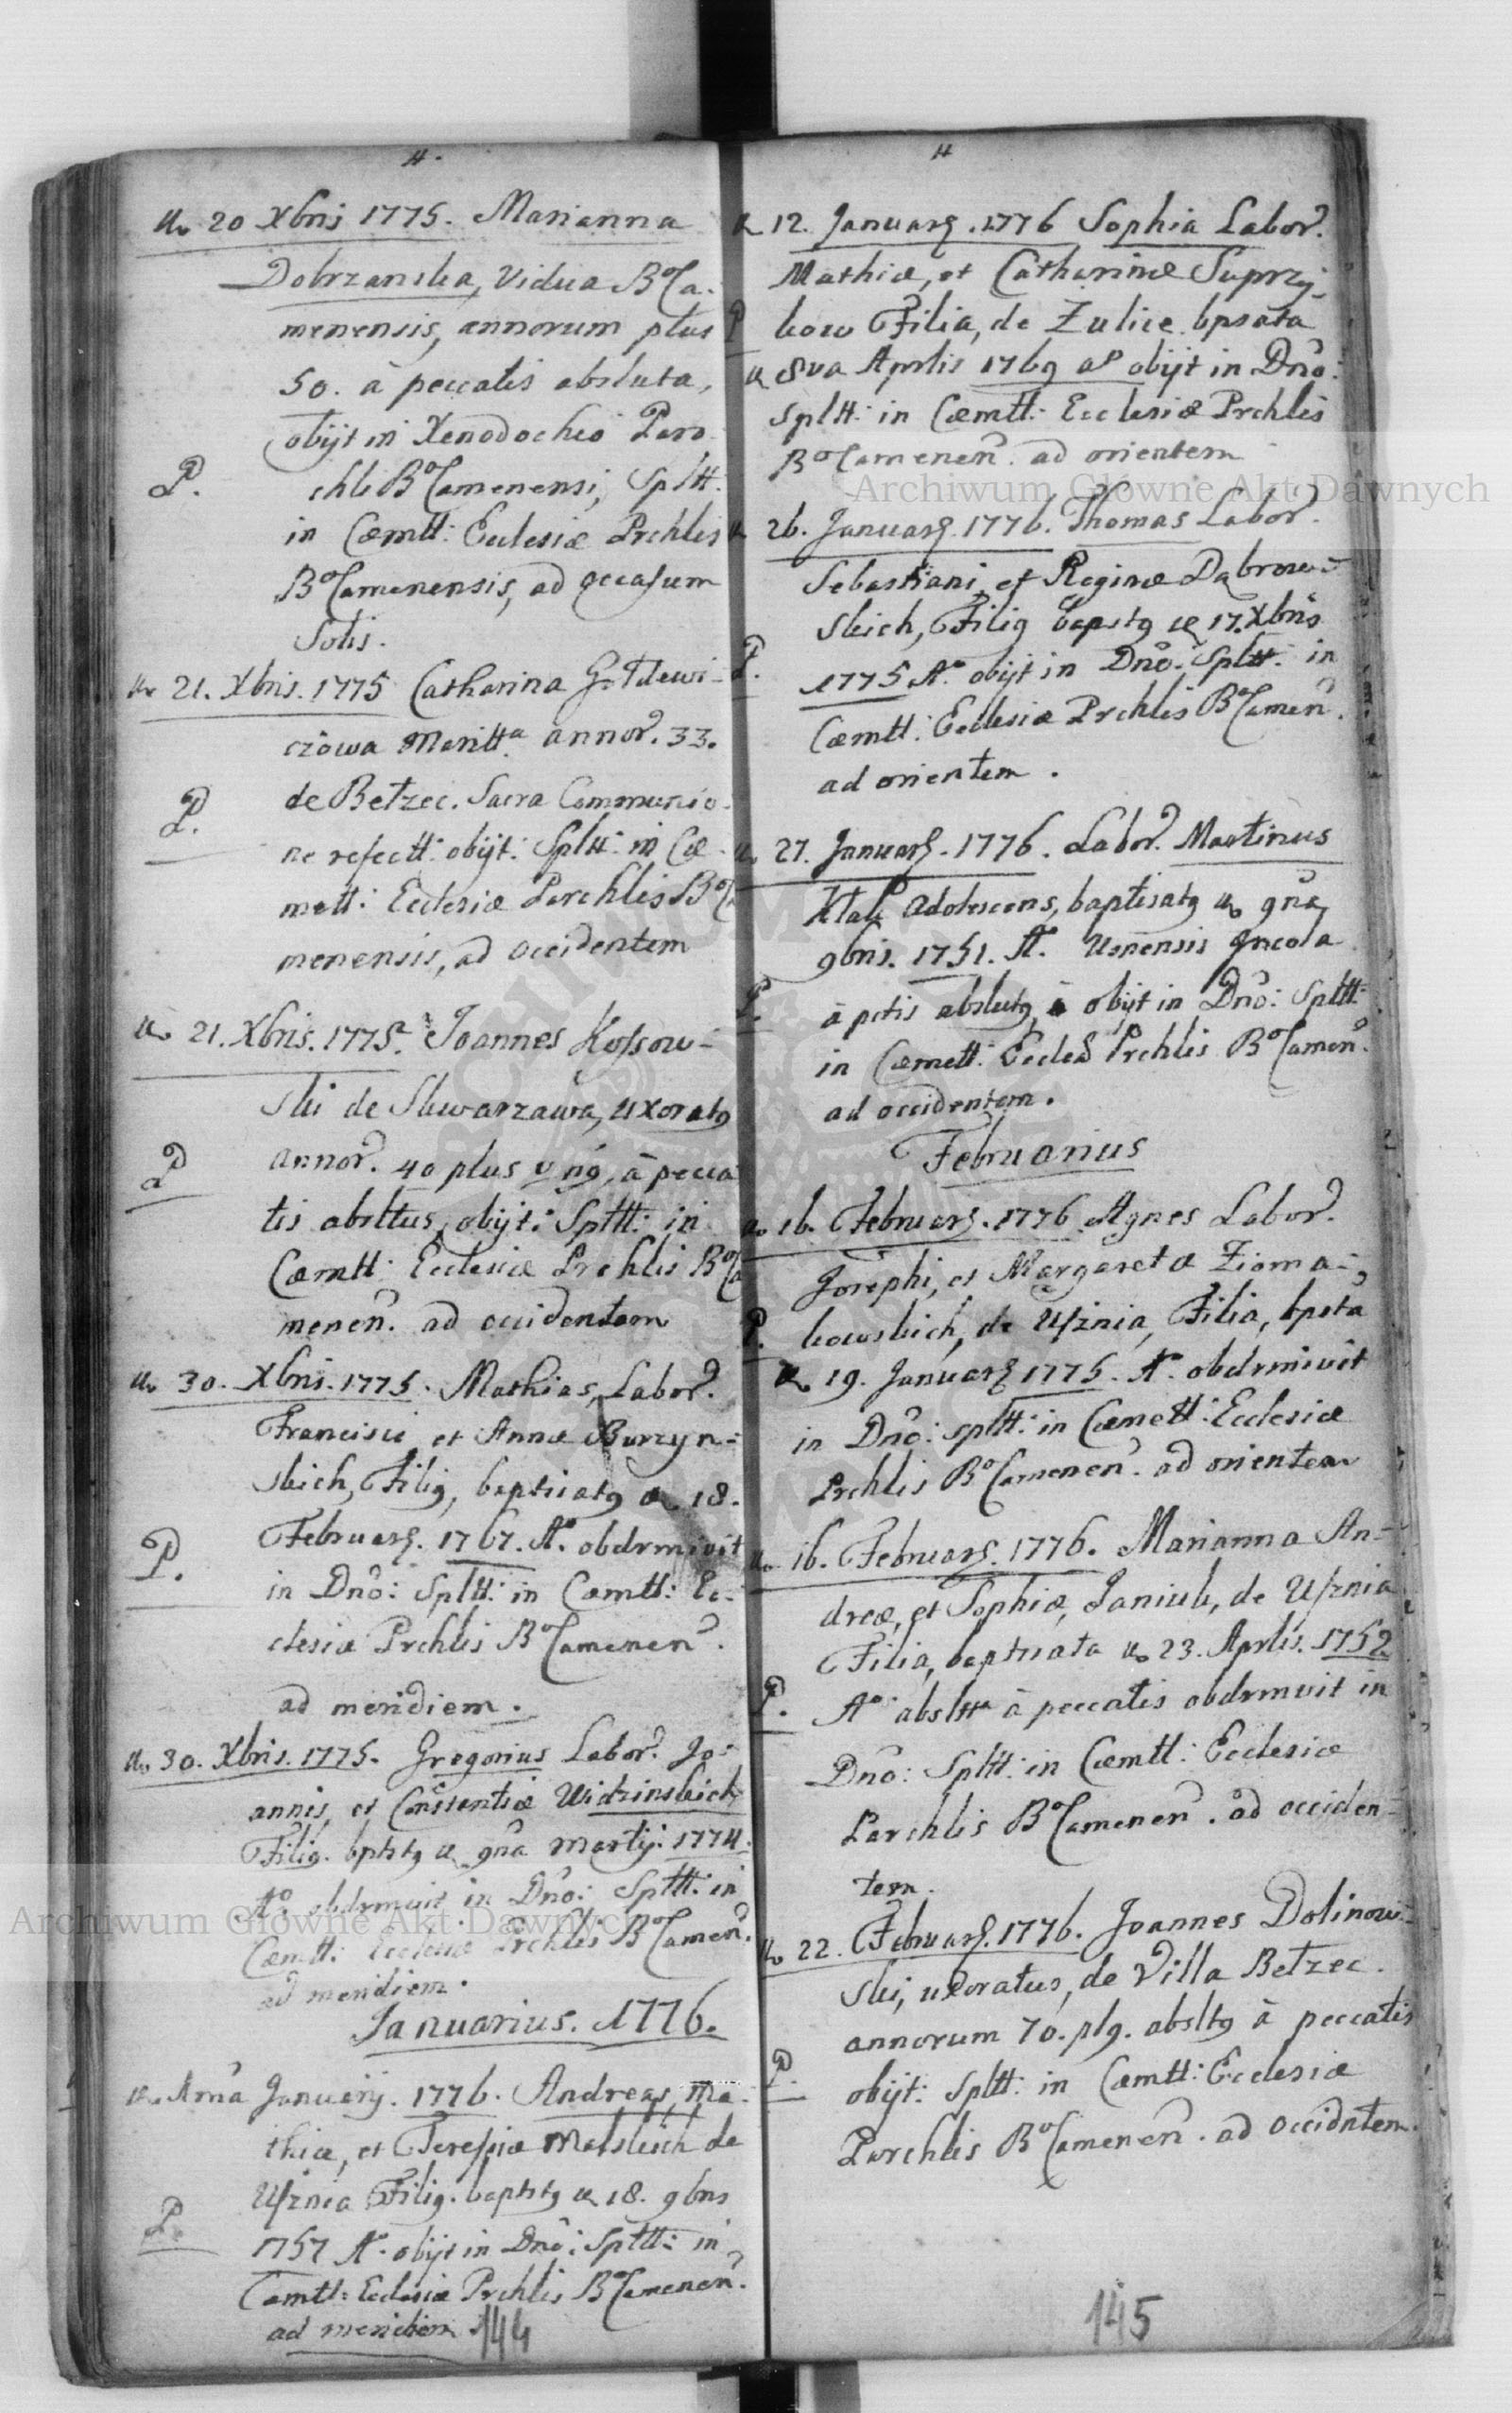 20 Xbris 1775. Marianna
Dobrzanska, Vidua BoCa-
menensis, annorum plus
50. à peccatis absluta,
obijt in Xenodochio Paro
P. chli BoCamenensi, Spltt.
in Cæmtt: Ecclesiæ Prchlis
BoCamenensis, ad occasum
Solis.
21. Xbris. 1775 Catharina
czowa Maritta annor. 33.
de Bełzec. Sacra Communio-
P. ne refectt: obijt: Spltt: in Cæ-
mett: Ecclesiæ Parchlis BoCa
menensis, ad occidentem
21. Xbris. 1775. Joannes Kossow-
ski de Skwarzawa, uxoratg
P annor. 40 plus à pecca
tis absltus, obijt: Spltt: in
Cæmtt: Ecclesiæ Prchlis BoCa
menen. ad occidentem
30. Xbris. 1775. Mathias, Labor.
Francisci et Annæ Burzyn-
skich, Filig, baptisatg 18.
Februarj. 1767. Ao. obdrmivit
P. in Dno: Spltt: in Cæmtt: Ec-
clesiæ Prchlis BoCamenen.
ad meridiem.
30. Xbris. 1775. Gregorius Labor. Jo-
annis, et Constantiæ
Filig. bptstg 9na Martij. 1774.
Ao obdrmivit in Dno: Spltt: in
Cæmtt: Ecclesiæ Prchlis BoCamen.
ad meridiem.
Januarius. 1776.
Januarij. 1776. Andreas, Ma-
thiæ, et Teressiæ Malskich de
Usznia Filig. baptstg 18. 9bris
P. 1757 Ao. obijt in Dno: Spltt: in
Cæmtt: Ecclesiæ Prchlis BoCamenen.
ad meridiem
144
12. Januarj. 1776 Sophia Labor.
Mathiæ, et Catharinæ Suprzy-
P kow Filia, de Zulice bpsata
8va Aprlis 1769 ao obijt in Dno:
Spltt: in Cæmtt: Ecclesiæ Prchlis
BoCamenen. ad orientem
26. Januarj. 1776. Thomas Labor.
Sebastiani, et Reginæ Dąbrow-
skich, Filig bapstg 17. Xbris
P. 1775 Ao. obijt in Dno: Spltt: in
Cæmtt: Ecclesiæ Prchlis BoCamen.
ad orientem.
27. Januarj. 1776. Labor. Martinus
adolescens, baptisatg 9na
9bris. 1751. A. Usnensis Incola
P. à pctis abslutg obijt in Dno: Spltt:
in Cæmett: Prchlis BoCamen.
ad occidentem.
Februarius
16. Februarj. 1776 Agnes Labor.
Josephi, et Margaretæ Zioma-
P. kowskich, de Usznia, Filia, bpsta
19. Januarj 1775. Ao obdrmivit
in Dno: spltt: in Cæmett: Ecclesiæ
Prchlis BoCamenen. ad orientem
16. Februarj. 1776. Marianna An-
dreæ, et Sophiæ, Janiuk, de Usznia
Filia, baptisata 23. Aprlis. 1752
P. Ao abslttta à peccatis obdrmvit in
Dno: Spltt: in Cæmtt: Ecclesiæ
Parchlis BoCamenen. ad occiden-
tem.
22. Februarj. 1776. Joannes Dolinow-
ski, uxoratus, de Villa Bełzec.
annorum 70. plg. absltg à peccatis
P. obijt: Spltt: in Cæmtt: Ecclesiæ
Parchlis BoCamenen. ad occidntem.
145
Archiwum Główne Akt Dawnych
Archiwum Główne Akt Dawnych